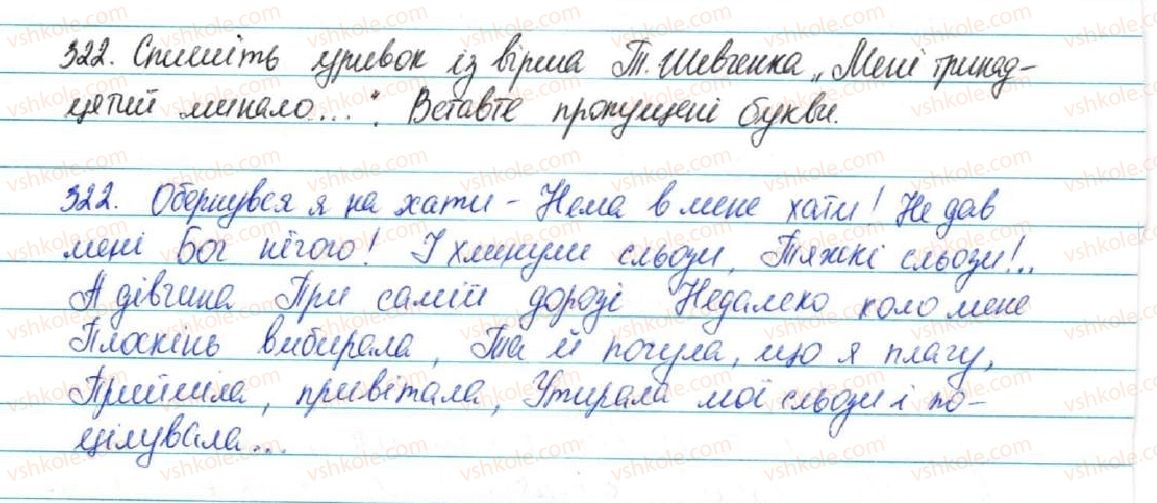 322. Спишіть уривок із вірша Т. Шевченка „Мені тринад-
цятий минало...". Вставте пропущені букви.
322. Обернувся я на хати - Нема в мене хати! Не дав
мені Бог нічого! І хлинули сльози, Тяжкі сльози!..
А дівчина При самій дорозі Недалеко коло мене
Плоскінь вибирала, Та й почула, що я плачу,
Прийшла, привітала, Утирала мої сльози і по-
цілувала...